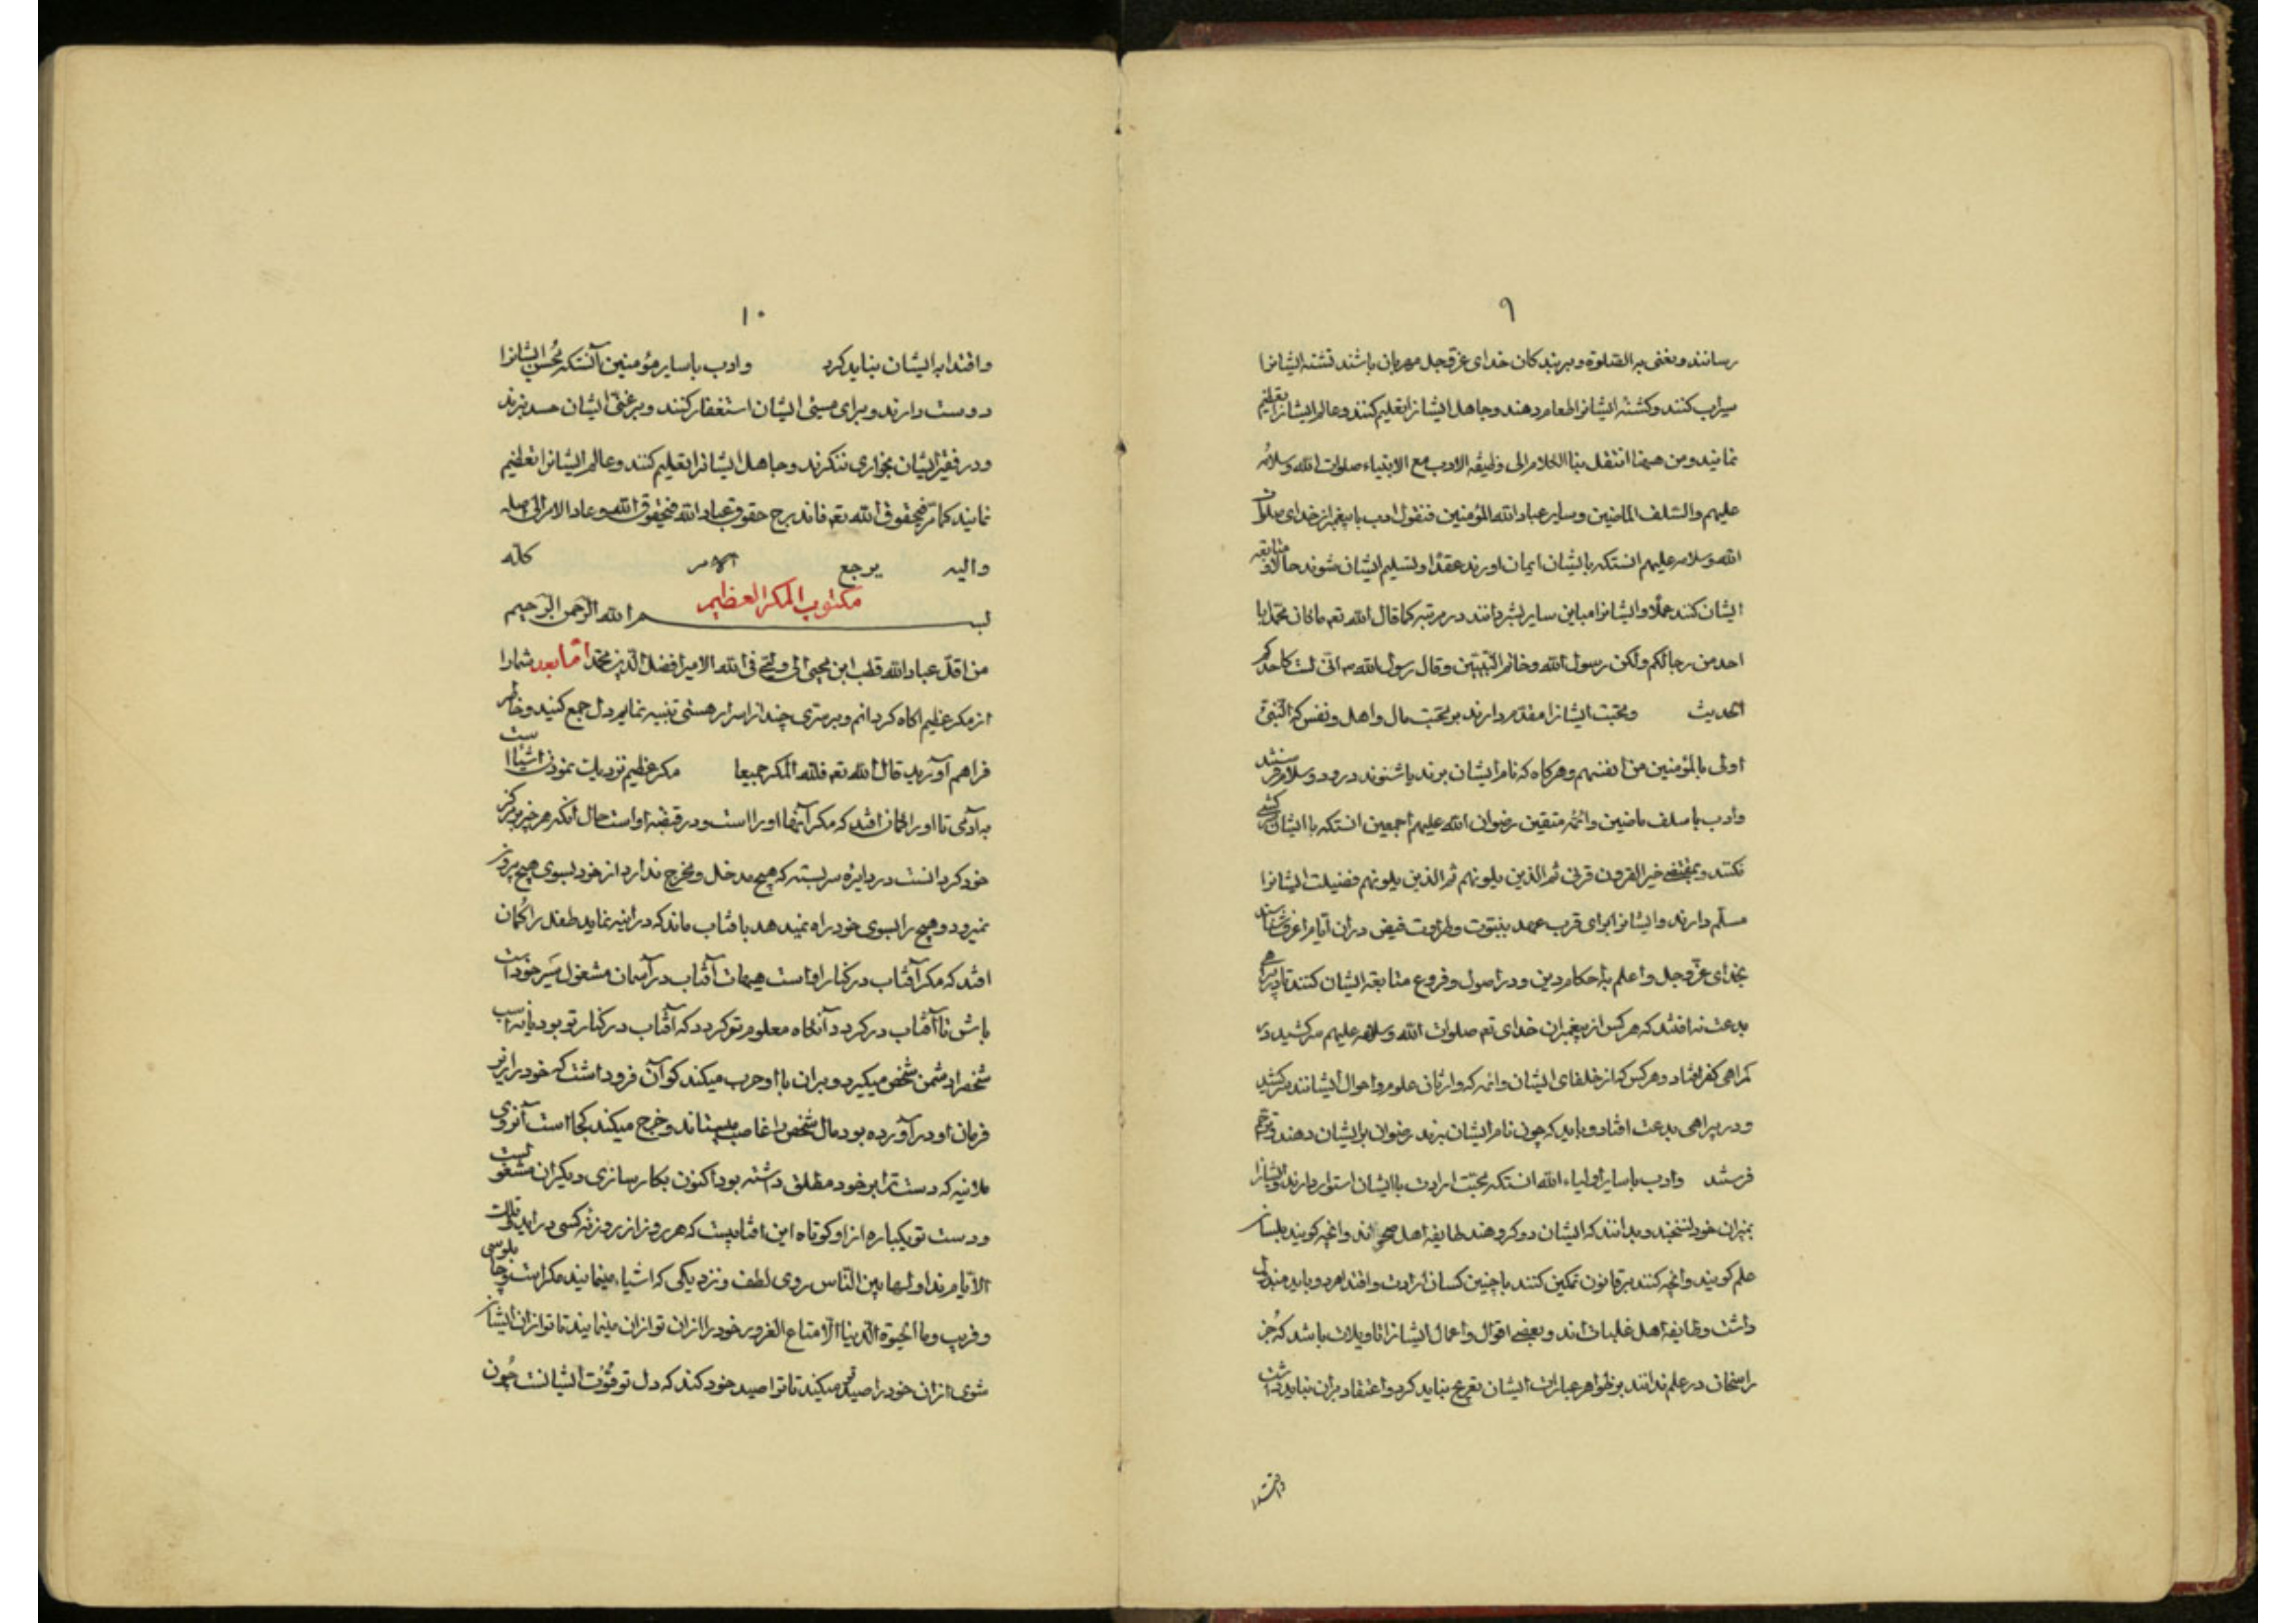 ۹
رسانند و بغنی به الصلوة و ببربندکان خدای عزوجل مهربان باشند تشنه ایشانرا
سیراب کنند و کشنه ایشانرا طعام دهند و جاهل ایشانرا تعلیم کنند و عالم ایشانرا تعظیم
نمانید و من هیهنا انتقل بنا الکلام الی وظیفه الادب مع الانبیاء صلوات الله و سلامه
علیهم والسلف الماضین و سایر عباد الله المؤمنین فنقول ادب با پیغمبران خدای صلوات
الله و سلامه علیهم انستکه بایشان ایمان اورند عقدًا و تسلیم ایشان شوند حالا و متابعه
ایشان کنند عملًا و ایشانرا مباین سایر بشر دانند در مرتبه کما قال الله تع ما کان محمد ابا
احد من رجالکم ولکن رسول الله و خاتم النبیین و قال رسول الله ص انی لست کاحدکم
الحدیث و محبت ایشانرا مقدم دارند بر محبت مال و اهل و نفس که النبی
اولی بالمؤمنین من انفسهم و هرکاه که نام ایشان برند یا شنوند درود و سلام فرستند
وادب با سلف ماضین و ائمه متقین رضوان الله علیهم اجمعین انستکه با ایشان
نکنند و بمقتضی خیر القرون قرنی ثم الذین یلونهم ثم الذین یلونهم فضیلت ایشانرا
مسلّم دارند و ایشانرا برای قرب عهد بنبوت و طراوت فیض در ان ایام اعرف شناسند
بخدای عزوجل و اعلم باحکام دین و در اصول و فروع متابعه ایشان کنند تا در بیراهی
بدعت نه افتند که هر کس از پیغمبران خدای تع صلوات الله و سلامه علیهم سرکشید در
کمراهی کفر افتاد و هر کس که از خلفای ایشان و ائمه که وارثان علوم و احوال ایشانند سرکشید
و در بیراهی بدعت افتاد و باید که چون نام ایشان برند رضوان بر ایشان دهند و ترحم
فرستند وادب با سایر اولیاء الله انستکه محبت ارادت با ایشان استوار دارند و ایشانرا
بمیزان خود نسنجند و بدانند که ایشان دو کروهند طایفه اهل صحو اند و انچه کویند بلسان
علم کویند و انچه کنند بر قانون تمکین کنند با چنین کسان ارادت و اقتدا هر دو باید مبذول
داشت و طایفه اهل غلبات اند و بعضی اقوال و اعمال ایشانرا تاویلات باشد که جز
راسخان در علم ندانند بر ظواهر عبارات ایشان تفرع نباید کرد و اعتقاد بران نباید داشت
۱۰
واقتدا به ایشان نباید کرد وادب با سایر مؤمنین آنستکه محسن ایشانرا
دوست دارند و برای مسیئی ایشان استغفار کنند و بر غنی ایشان حسد نبرند
و در فقیر ایشان بخواری ننکرند و جاهل ایشانرا تعلیم کنند و عالم ایشانرا تعظیم
نمایند کما مر فی حقوق الله تع فاندرج حقوق عباد الله فی حقوق الله و عاد الامر الی اصله
والیه یرجع الامر کله
مکتوب المکر العظیم
بسم الله الرحمن الرحیم
من اقل عباد الله قطب ابن محیی الی ولیی فی الله الامیر افضل الدین محمد اما بعد شما را
از مکر عظیم اکاه کردانم و بر سرّی چند از اسرار هستی تنبیه نمایم دل جمع کنید و خاطر
فراهم آورید قال الله تع فلله المکر جمیعا مکر عظیم نزدیک نمودن اشیا است
به آدمی تا او را کمان افتد که مکر آنها او را است و در قبضه او است حال انکه هر چیز بر مرکز
خود کردانست در دایره سربسته که هیچ مدخل و مخرج ندارد از خود بسوی هیچ بیرون
نمیرود و هیچ را بسوی خود راه نمیدهد بافتاب ماند که در اینه نماید طفل را کمان
افتد که مکر آفتاب در کنار او است هیهات آفتاب در آسمان مشغول سیر خود است
باش تا آفتاب در کردد آنکاه معلوم تو کردد که آفتاب در کنار تو بود یا نه اسب
شخص را دشمن شخص میکیرد و بران با او حرب میکند کو آن فروداشت که خود را زیر
فرمان او در آورده بود مال شخص را غاصب میستاند و خرج میکند کجا است آنروی
علانیه که دست ترا بر خود مطلق داشته بود اکنون بکارسازی دیکران مشغولست
و دست تو یکباره از او کوتاه این افتابیست که هر روز از روزنه کسی در اید و تلک
الایام نداولها بین الناس روی لطف و نزدیکی که اشیاء مینمایند مکر است و چاپلوسی
و فریب و ما الحیوة الدنیا الا متاع الغرور خود را ازان تو ازان مینمایند تا تو ازان ایشان
شوی ازان خود را صید تو میکنند تا ترا صید خود کنند که دل تو قوّت ایشانست چون